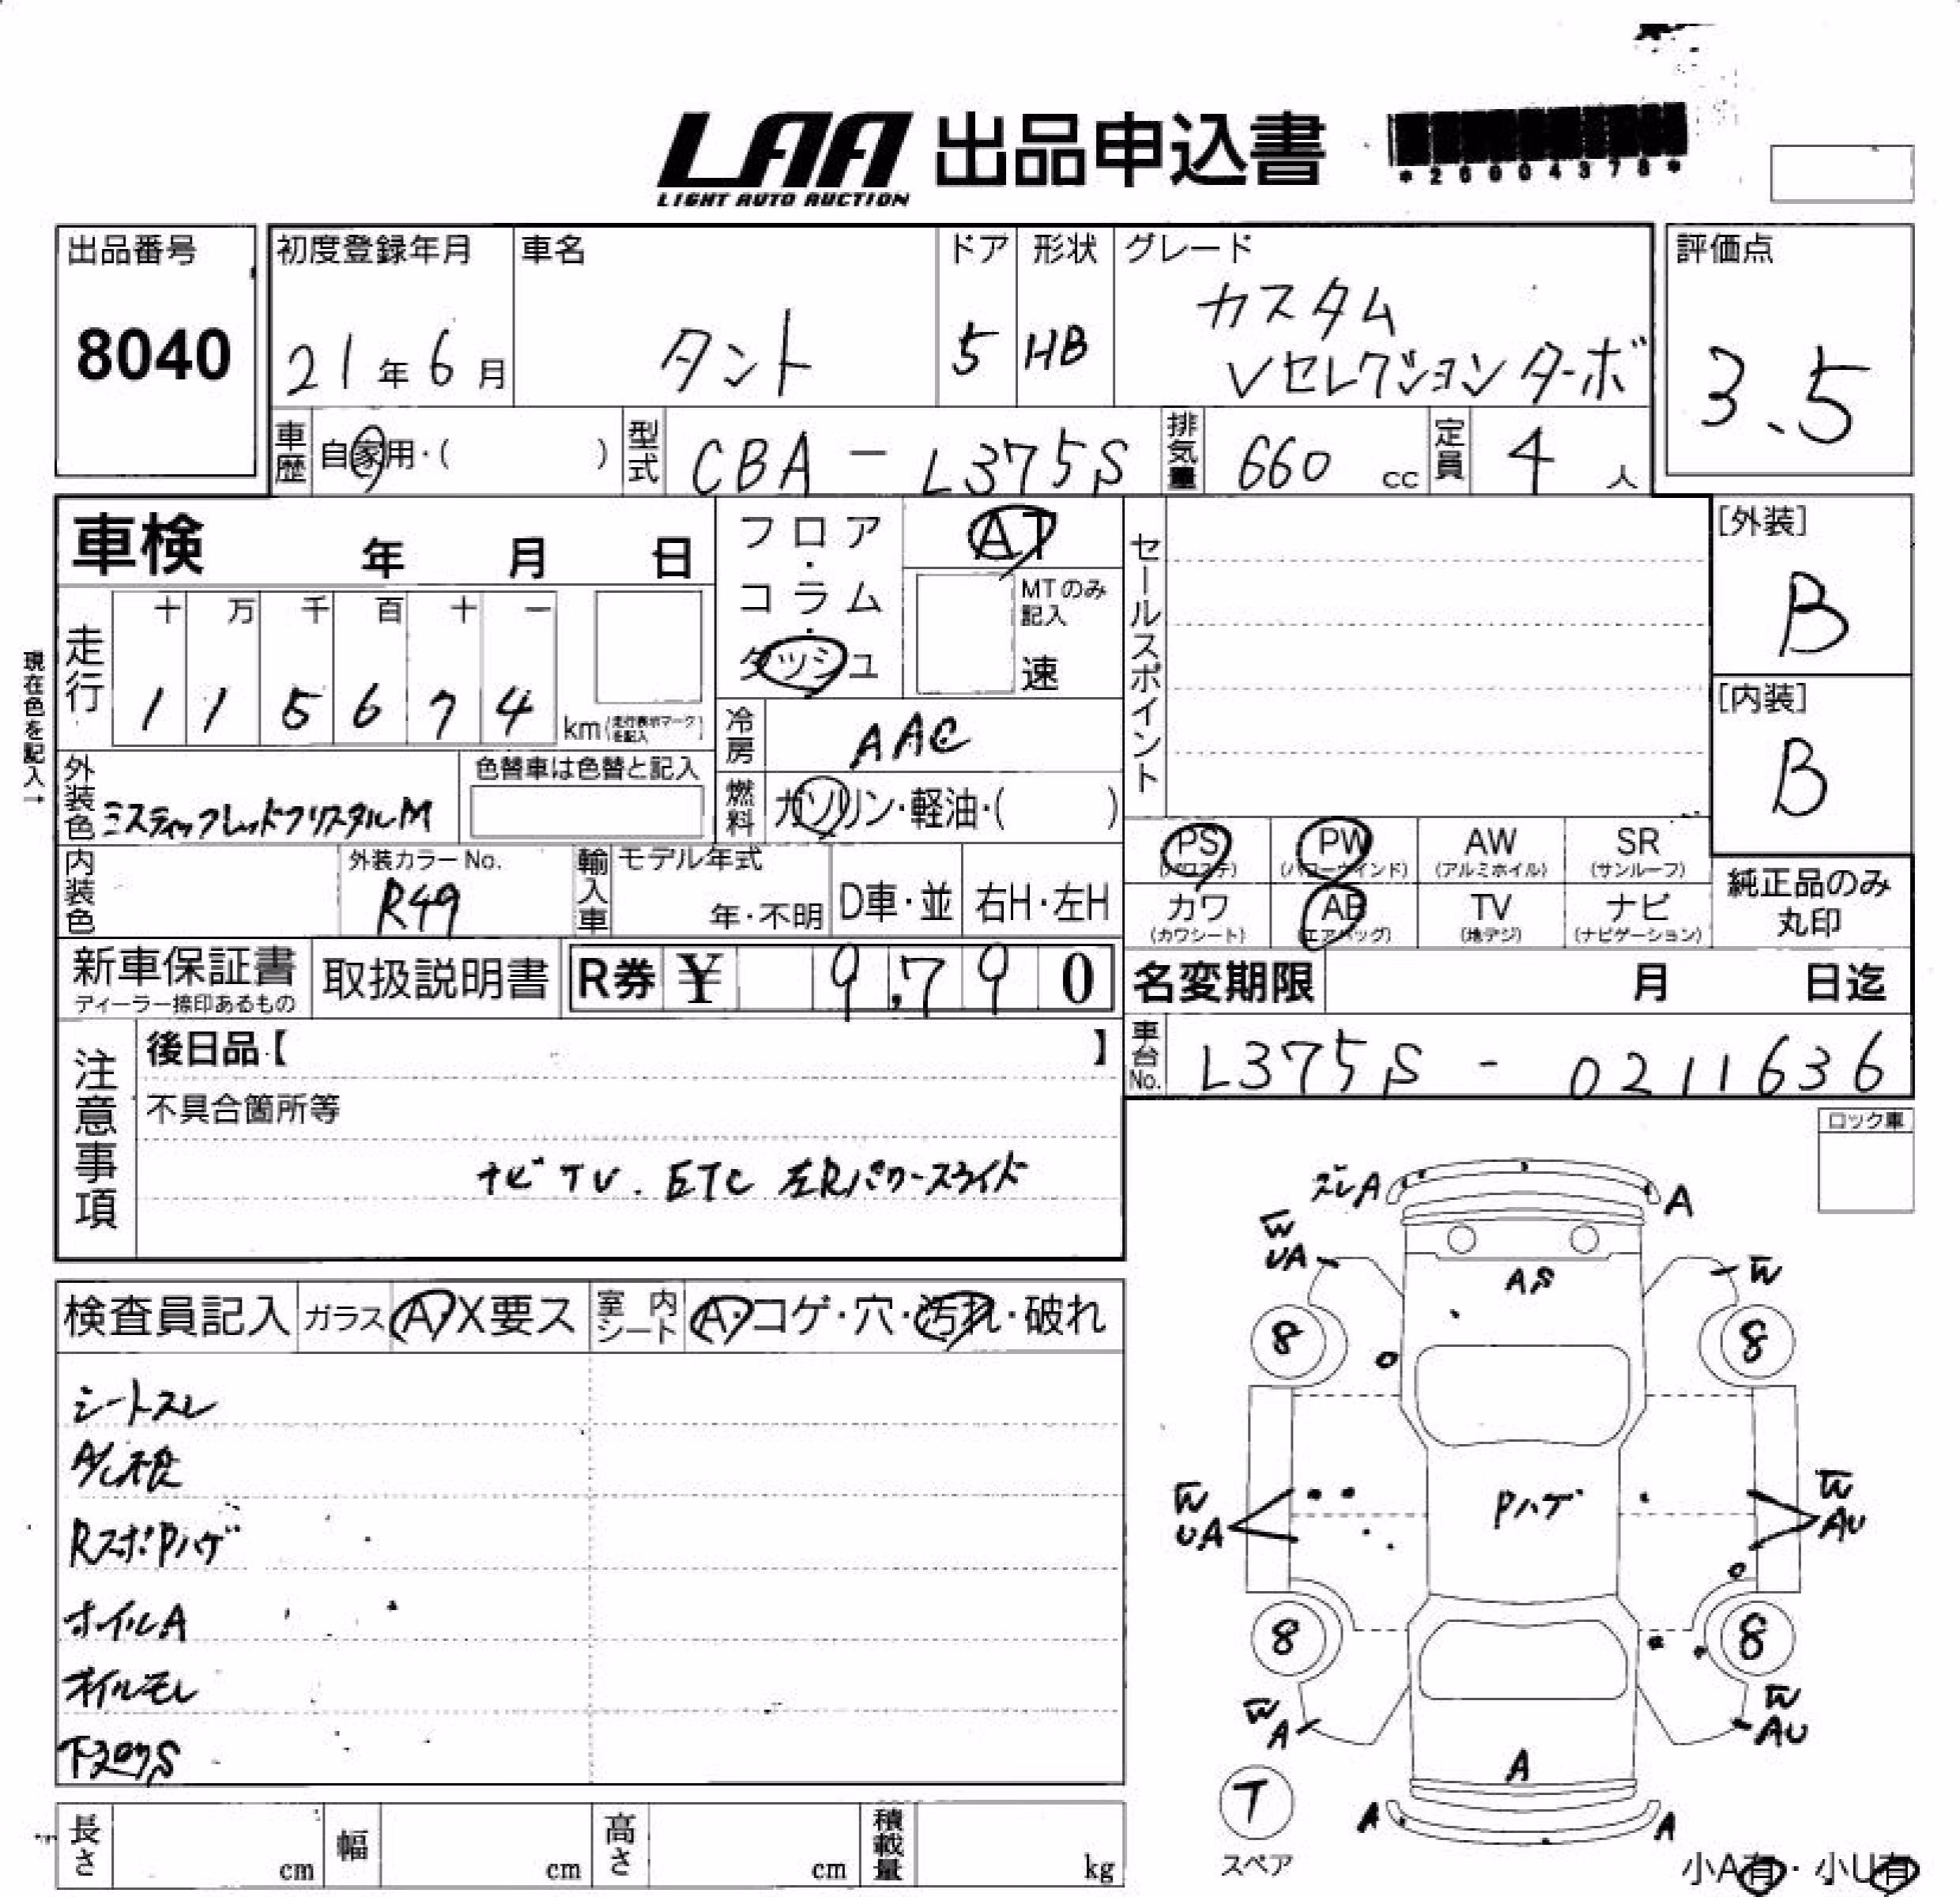 LAA 出品申込書
LIGHT AUTO AUCTION
出品番号
8040
初度登録年月
21年6月
車名
タント
ドア
5
形状
HB
グレード
カスタム
Vセレクションターボ
評価点
3.5
車歴
自家用・( )
型式
CBA-L375S
排気量
660 cc
定員
4人
車検 年 月 日
フロア・コラム・ダッシュ
AT
MTのみ記入
速
セールスポイント
[外装]
B
[内装]
B
現在色を記入→
走行
十 万 千 百 十 一
1 1 5 6 7 4 km (走行表示マークを記入)
冷房
AAC
外装色
ミスティックレッドクリスタルM
色替車は色替と記入
燃料
ガソリン・軽油・( )
PS AW SR
PW
(パワステ) (パワーウインド) (アルミホイル) (サンルーフ)
カワ AB TV ナビ
(カワシート) (エアバッグ) (地デジ) (ナビゲーション)
純正品のみ
丸印
内装色
外装カラーNo.
R49
輸入車
モデル年式
年・不明
D車・並
右H・左H
新車保証書
ディーラー捺印あるもの
取扱説明書
R券 ¥ 9,790
名変期限 月 日迄
車台No.
L375S - 0211636
注意事項
後日品【 】
不具合箇所等
ナビTV. ETC 左Rパワースライド
ロック車
検査員記入
ガラス
A X要ス
室内シート
A・コゲ・穴・汚れ・破れ
シートスレ
RスポPハゲ
ホイルA
オイルモレ
スレA
A
W
UA
W
AS
8
8
W
UA
Pハゲ
W
AU
8
8
W
A
W
AU
A
T
スペア
A
A
小A有・小U有
長さ cm
幅 cm
高さ cm
積載量 kg